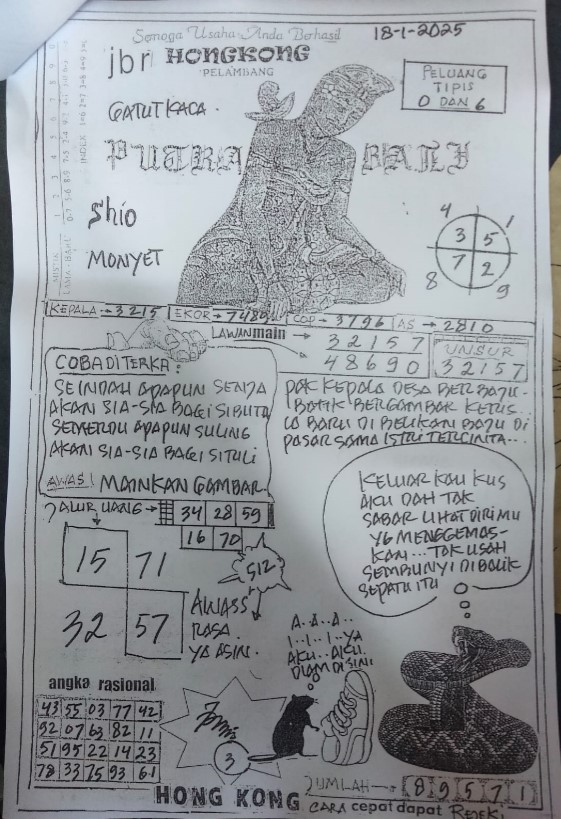 Semoga Usaha Anda Berhasil
18-1-2025
jbr HONGKONG
PELAMBANG
PELUANG
TIPIS
0 DAN 6
GATUTKACA.
PUTRA BALI
Shio
MONYET
4 1
3 5
7 2
8 9
KEPALA → 3215 EKOR → 7489 COP → 3796 AS → 2810
LAWAN main →
32157
48690
UNSUR
32157
COBA DITERKA:
SEINDAH APAPUN SENJA
AKAN SIA-SIA BAGI SIBUTA
SEMERDU APAPUN SULING
AKAN SIA-SIA BAGI SITULI
AWAS! MAINKAN GAMBAR.
PAK KEPALA DESA BERBAJU-
BATIK BERGAMBAR KERIS..
IA BARU DI BELIKAN BAJU DI
PASAR SAMA ISTRI TERCINTA...
JALUR UANG → 34 28 59
16 70
15 71
32 57
512
AWASS
RASA.
YA ASIN.
KELUAR KAU KUS
AKU DAH TAK
SABAR LIHAT DIRIMU
YG MENGGEMAS-
KAN... TAK USAH
SEMBUNYI DI BALIK
SEPATU ITU
A..A..A..
I..I..I..YA
AKU..AKU.
DIAM DI SINI
angka rasional
43 55 03 77 42
92 07 63 82 11
51 95 22 14 23
78 33 75 93 61
3
HONG KONG
JUMLAH → 8 9 5 7 1
CARA cepat dapat REZEKI